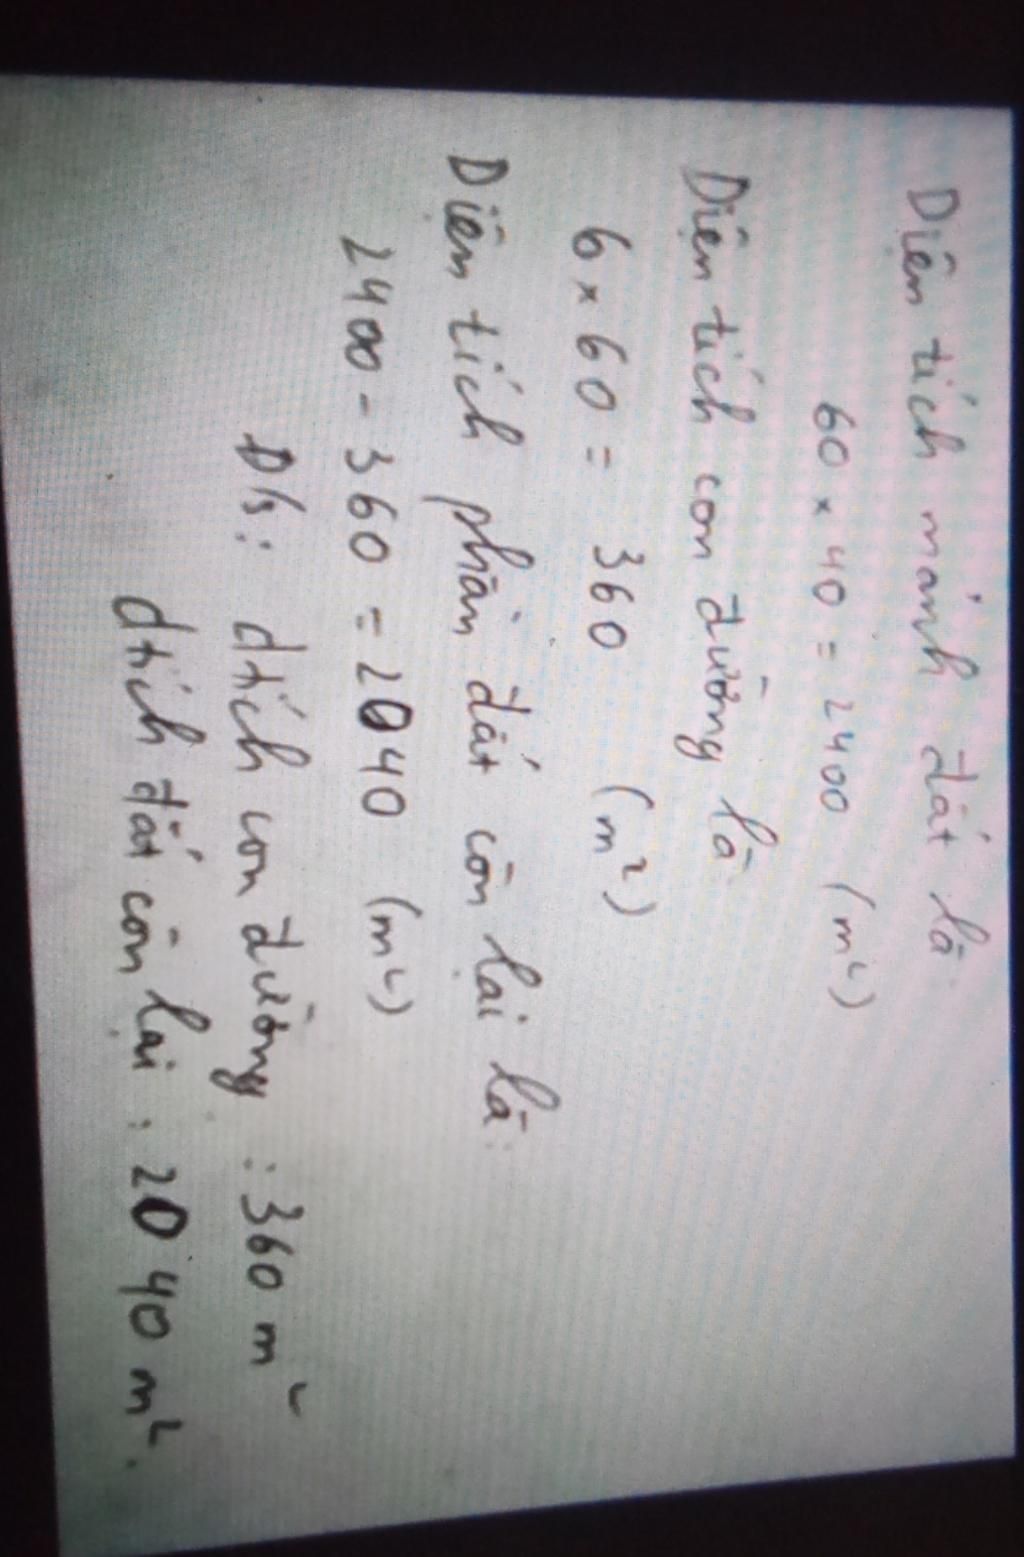 Diện tích mảnh đất là
60 × 40 = 2400 (m²)
Diện tích con đường là
6 × 60 = 360 (m²)
Diện tích phần đất còn lại là:
2400 - 360 = 2040 (m²)
Đ/s: dtích con đường : 360 m²
dtích đất còn lại : 2040 m².